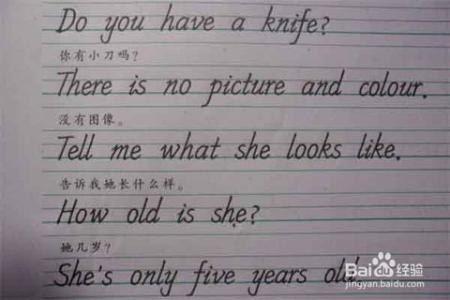 Do you have a knife?
你有小刀吗？
There is no picture and colour.
没有图像。
Tell me what she looks like.
告诉我她长什么样。
How old is she?
她几岁？
She's only five years old.
Baidu经验
jingyan.baidu.com